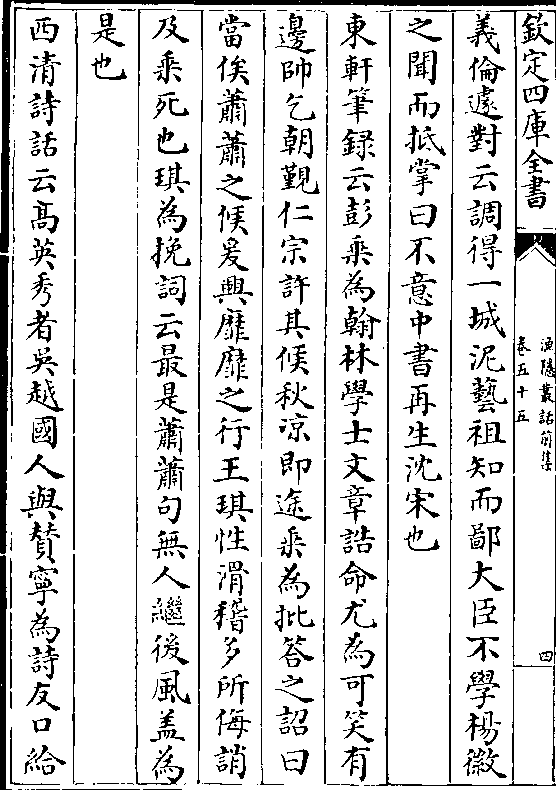 欽定四庫全書
漁隠叢話前集
卷五十五
四
義倫遽對云調得一城泥藝祖知而鄙大臣不學楊徽
之聞而抵掌曰不意中書再生沈宋也
東軒筆録云彭乘為翰林學士文章誥命尤為可笑有
邊帥乞朝覲仁宗許其候秋凉即途乘為批答之詔曰
當俟蕭蕭之候爰興靡靡之行王琪性滑稽多所侮誚
及乘死也琪為挽詞云最是蕭蕭句無人繼後風盖為
是也
西清詩話云髙英秀者吳越國人與賛寧為詩友口給